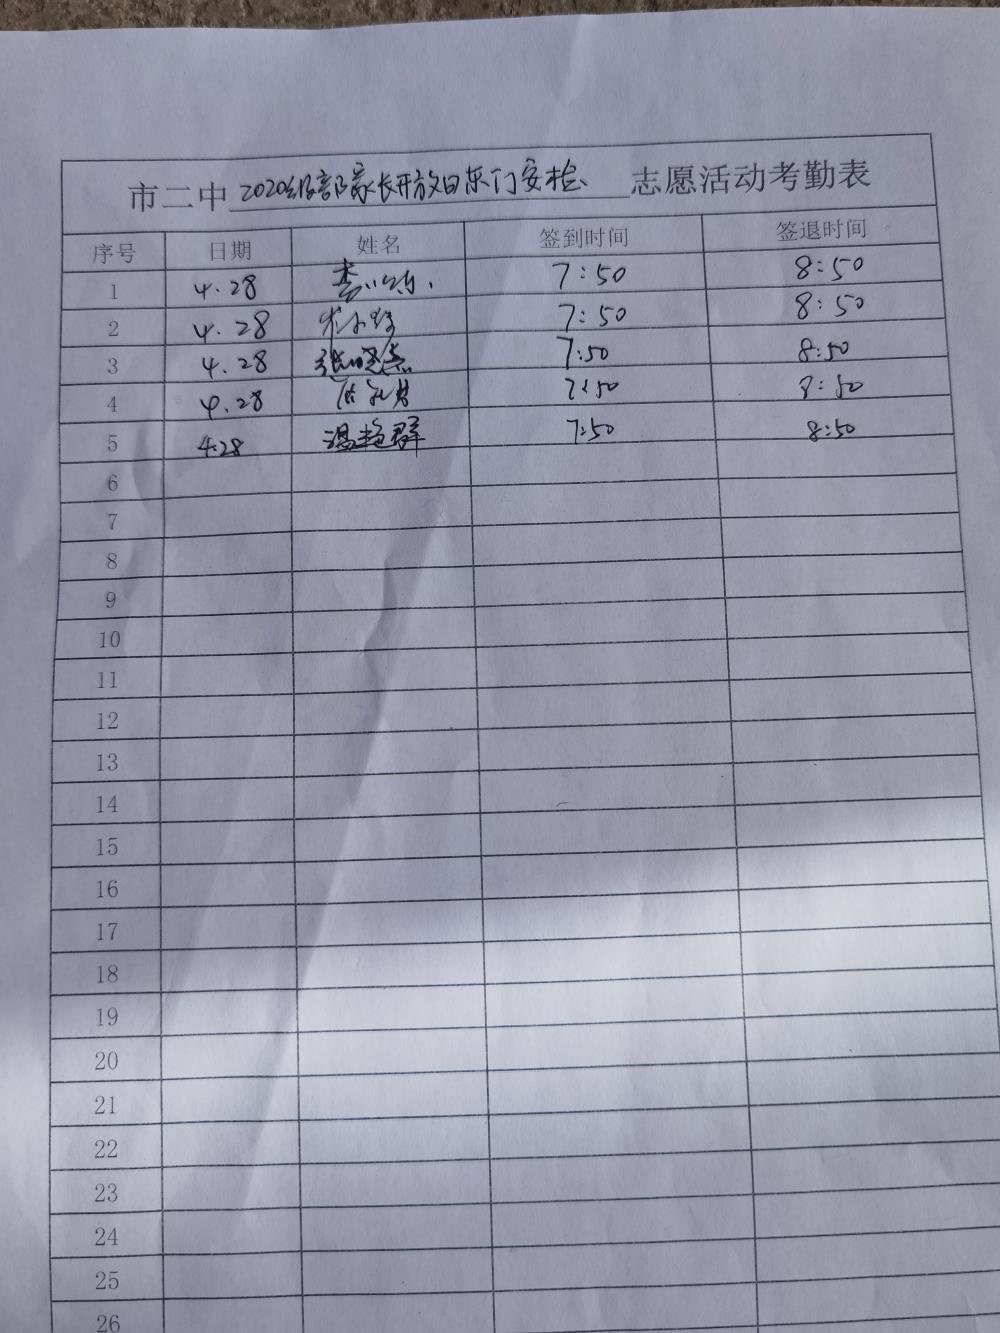 市二中2020级部家长开放日东门安检志愿活动考勤表
序号 日期 姓名 签到时间 签退时间
1 4.28 李 7:50 8:50
2 4.28 7:50 8:50
3 4.28 张晓燕 7:50 8:50
4 4.28 7:50 8:50
5 4.28 温艳群 7:50 8:50
6
7
8
9
10
11
12
13
14
15
16
17
18
19
20
21
22
23
24
25
26